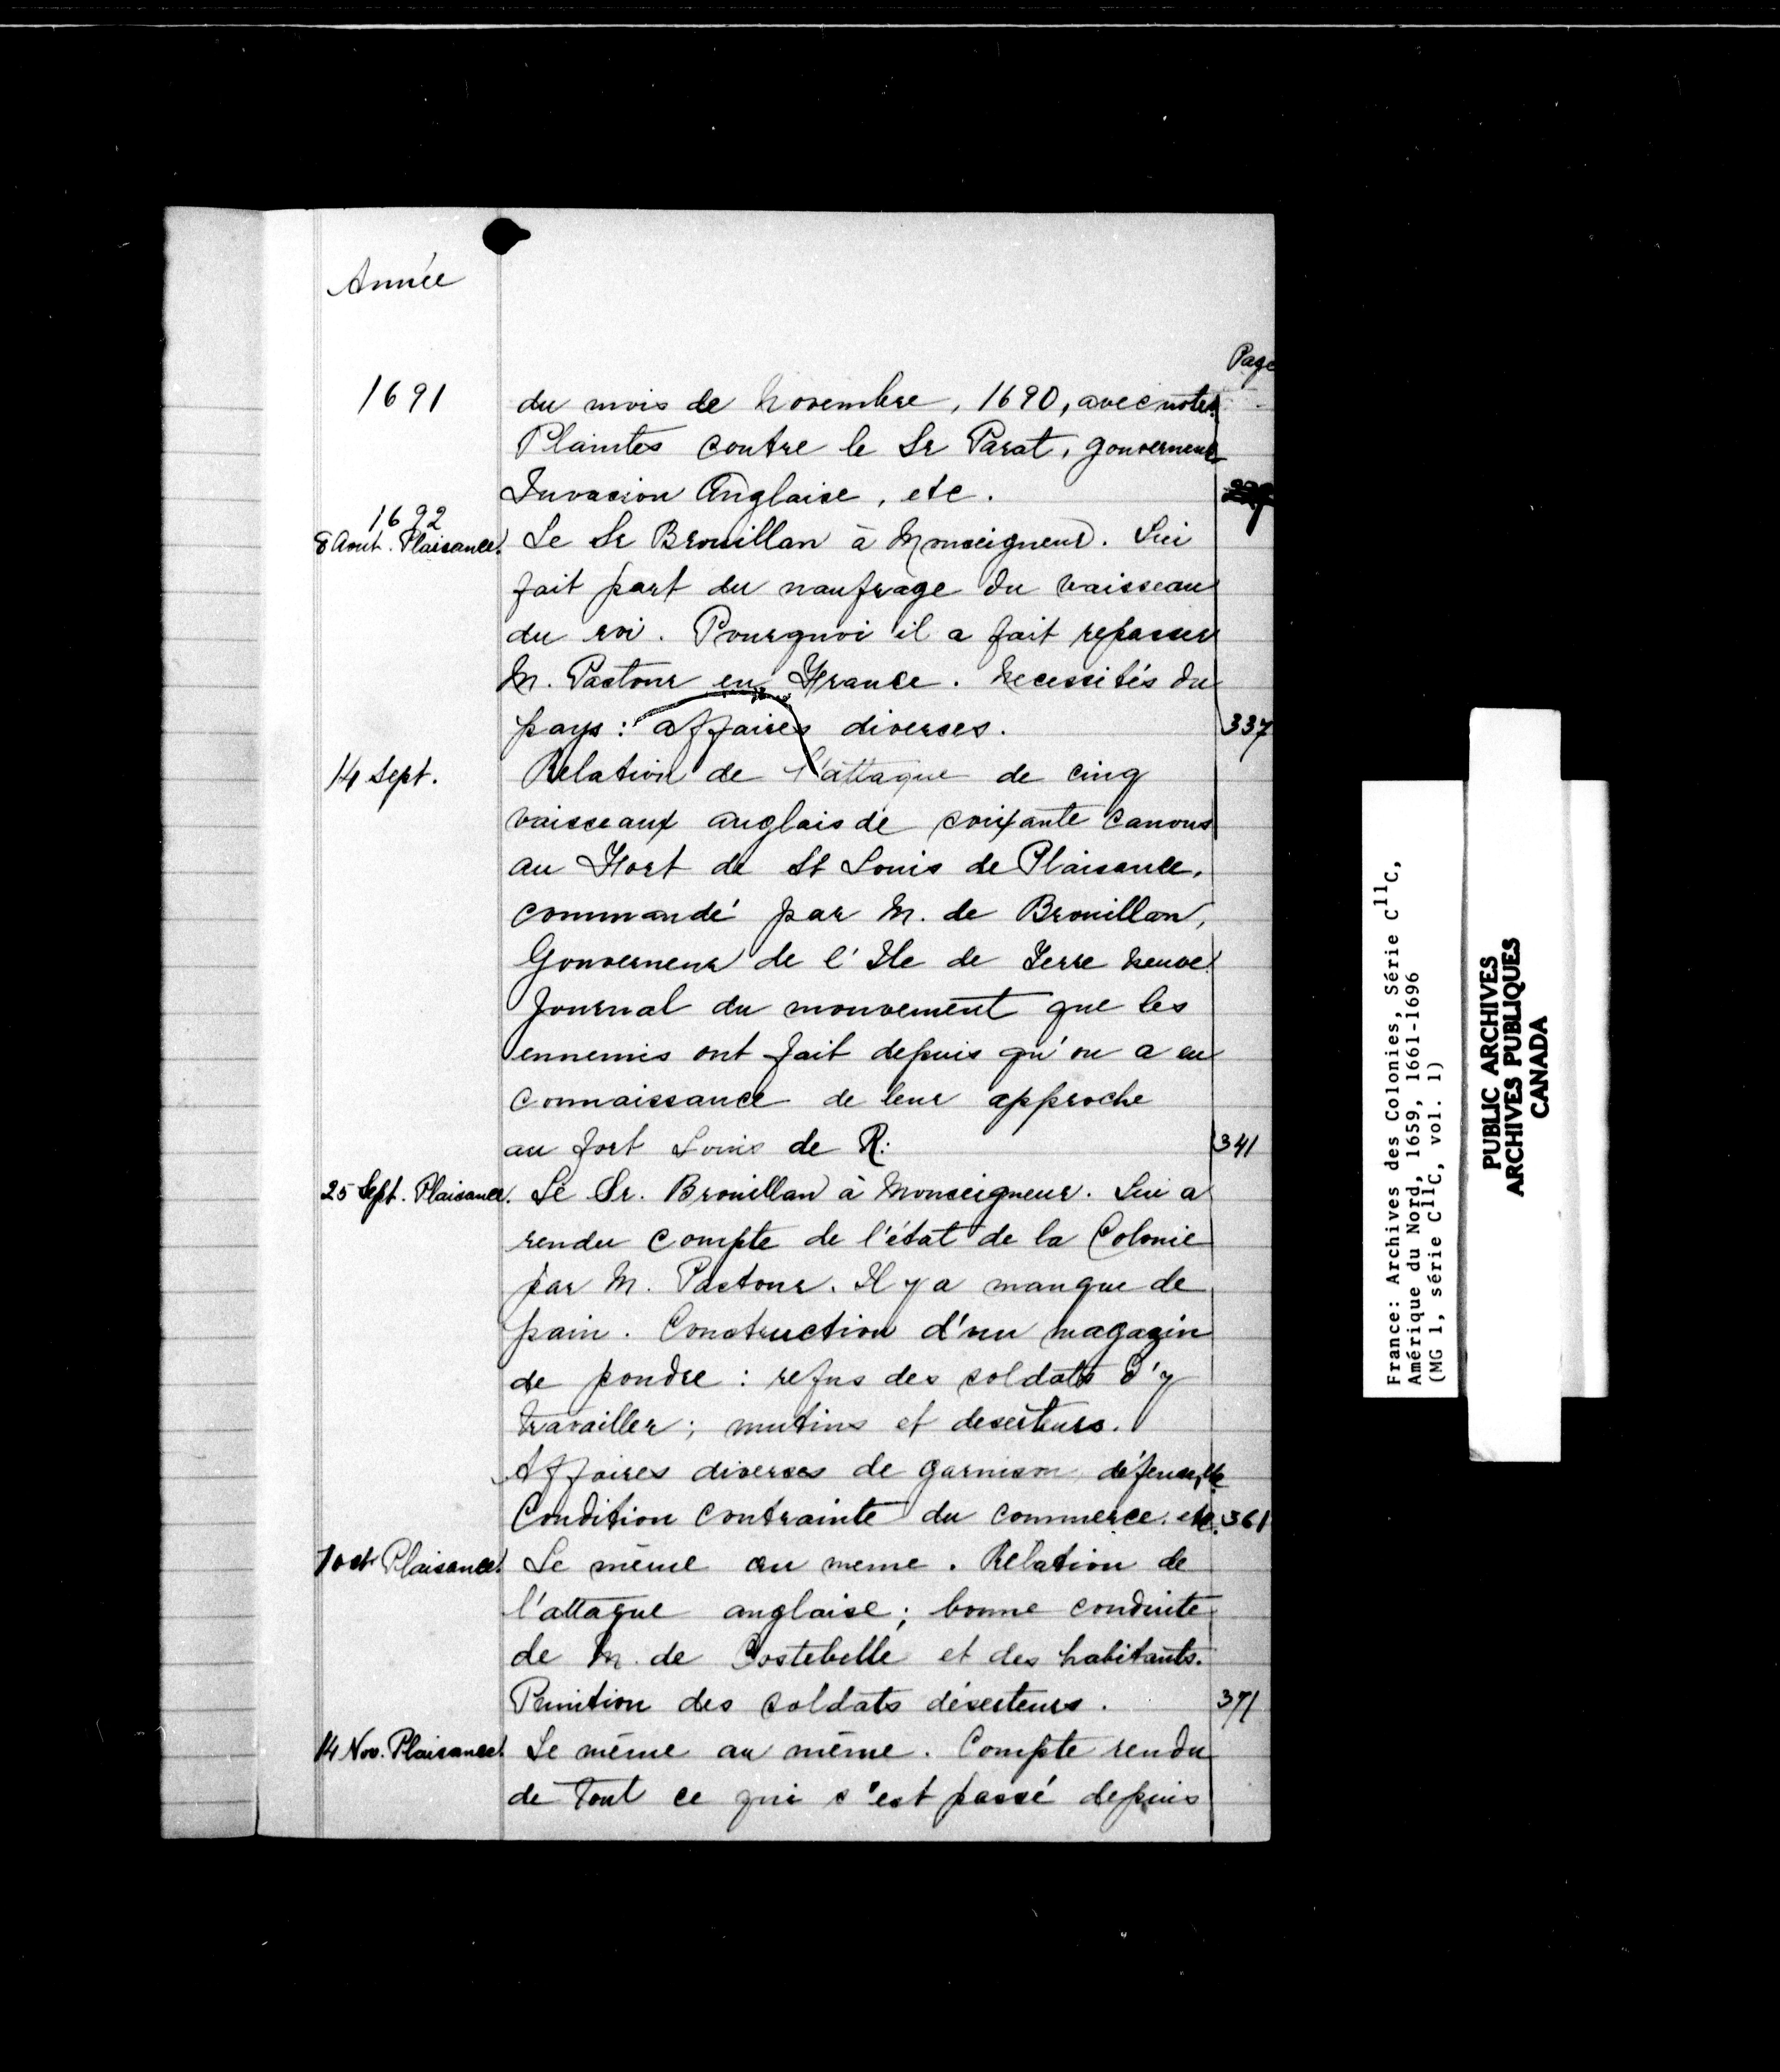 Année
Page
1691 du mois de Novembre, 1690, avec notes.
Plaintes contre le Sr Parat, gouverneur
Invasion Anglaise, etc.
1692
8 Aout. Plaisance. Le Sr Brouillan à Monseigneur. Lui
fait part du naufrage du vaisseau
du roi. Pourquoi il a fait repasser
M. Pastour en France. Necessités du
pays: affaires diverses. 337
14 Sept. Relation de l'attaque de cinq
vaisseaux anglais de soixante canons
au Fort de St Louis de Plaisance,
commandé par M. de Brouillan,
Gouverneur de l'Ile de Terre Neuve.
Journal du mouvement que les
ennemis ont fait depuis qu'on a eu
connaissance de leur approche
au fort Louis de R: 341
25 Sept. Plaisance. Le Sr. Brouillan à Monseigneur. Lui a
rendu compte de l'état de la Colonie
par M. Pastour. Il y a manque de
pain. Construction d'un magazin
de poudre: refus des soldats d'y
travailler; mutins et deserteurs.
Affaires diverses de garnison, défense, etc
Condition contrainte du commerce. etc. 361
7 oct Plaisance. Le même au meme. Relation de
l'attaque anglaise; bonne conduite
de M. de Costebelle et des habitants.
Punition des soldats déserteurs. 371
14 Nov. Plaisance. Le même au même. Compte rendu
de tout ce qui s'est passé depuis
France: Archives des Colonies, Série C11C,
Amérique du Nord, 1659, 1661-1696
(MG 1, série C11C, vol. 1)
PUBLIC ARCHIVES
ARCHIVES PUBLIQUES
CANADA